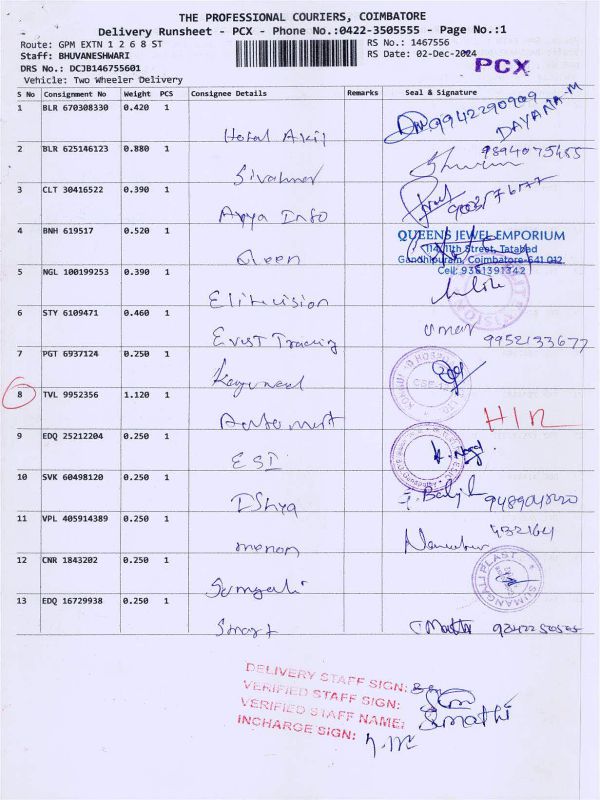 THE PROFESSIONAL COURIERS, COIMBATORE
Delivery Runsheet - PCX - Phone No.:0422-3505555 - Page No.:1
Route: GPM EXTN 1 2 6 8 ST RS No.: 1467556
Staff: BHUVANESHWARI RS Date: 02-Dec-2024
DRS No.: DCJB146755601 PCX
Vehicle: Two Wheeler Delivery
S No Consignment No Weight PCS Consignee Details Remarks Seal & Signature
1 BLR 670308330 0.420 1 9942290909
Hotal Akil DAYANA-M
2 BLR 625146123 0.880 1
3 CLT 30416522 0.390 1
Ayya Info
4 BNH 619517 0.520 1 QUEENS JEWEL EMPORIUM
Queen 114, 11th Street, Tatabad
Gandhipuram, Coimbatore-641 012.
5 NGL 100199253 0.390 1 Cell: 9361391342
Elitevision
6 STY 6109471 0.460 1 Umar
Evest Trading 9952133677
7 PGT 6937124 0.250 1
8 TVL 9952356 1.120 1 HIR
9 EDQ 25212204 0.250 1
ESI
10 SVK 60498120 0.250 1
11 VPL 405914389 0.250 1
menon
12 CNR 1843202 0.250 1 SUMANGALI PLAST
Sumgali
13 EDQ 16729938 0.250 1
Smart
DELIVERY STAFF SIGN:
VERIFIED STAFF SIGN:
VERIFIED STAFF NAME: Sumathi
INCHARGE SIGN: